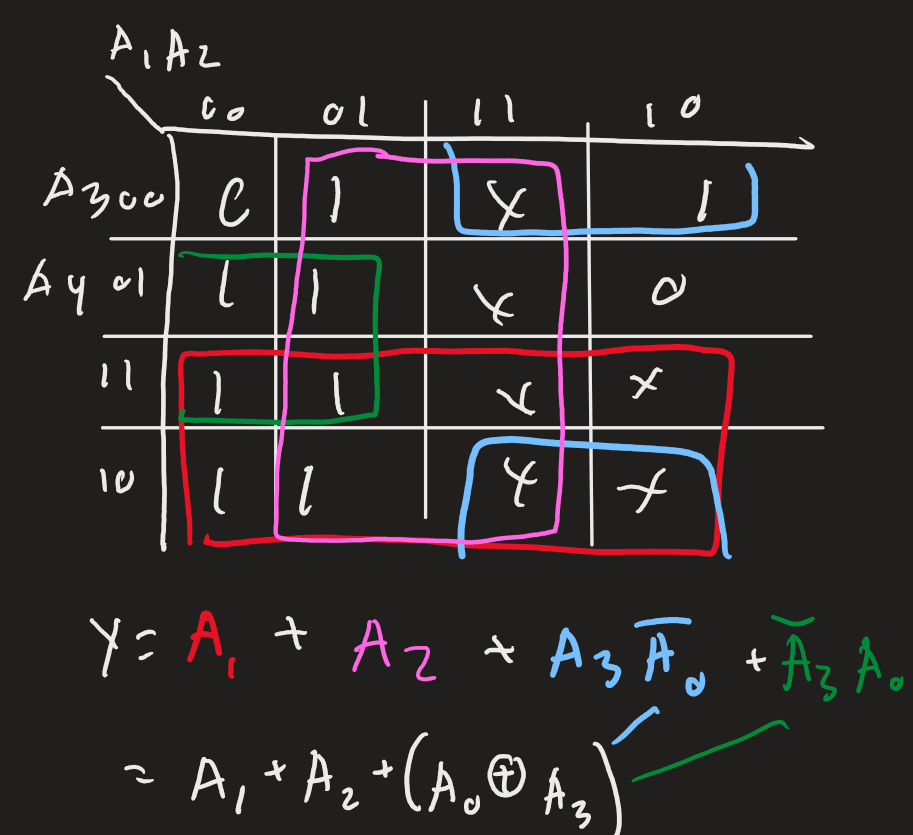 A₁A₂
00 01 11 10
A₃00 0 1 X 1
A4 01 1 1 X 0
11 1 1 X X
10 1 1 X X
Y = A₁ + A₂ + A₃A̅₀ + A̅₃A₀
= A₁ + A₂ + (A₀ ⊕ A₃)